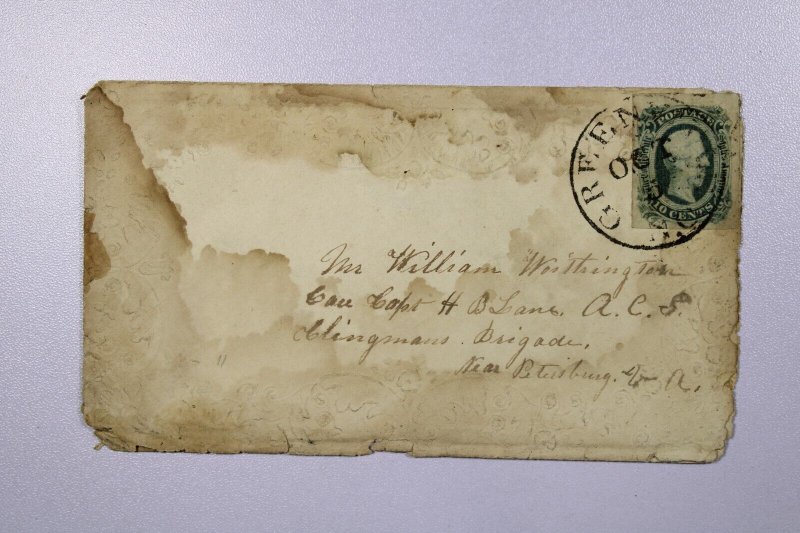 GREEN
OC
POSTAGE
10 CENTS
Mr William Worthington
Care Capt H B Lane. A. C. S.
Clingmans Brigade.
Near Petersburg. V A.